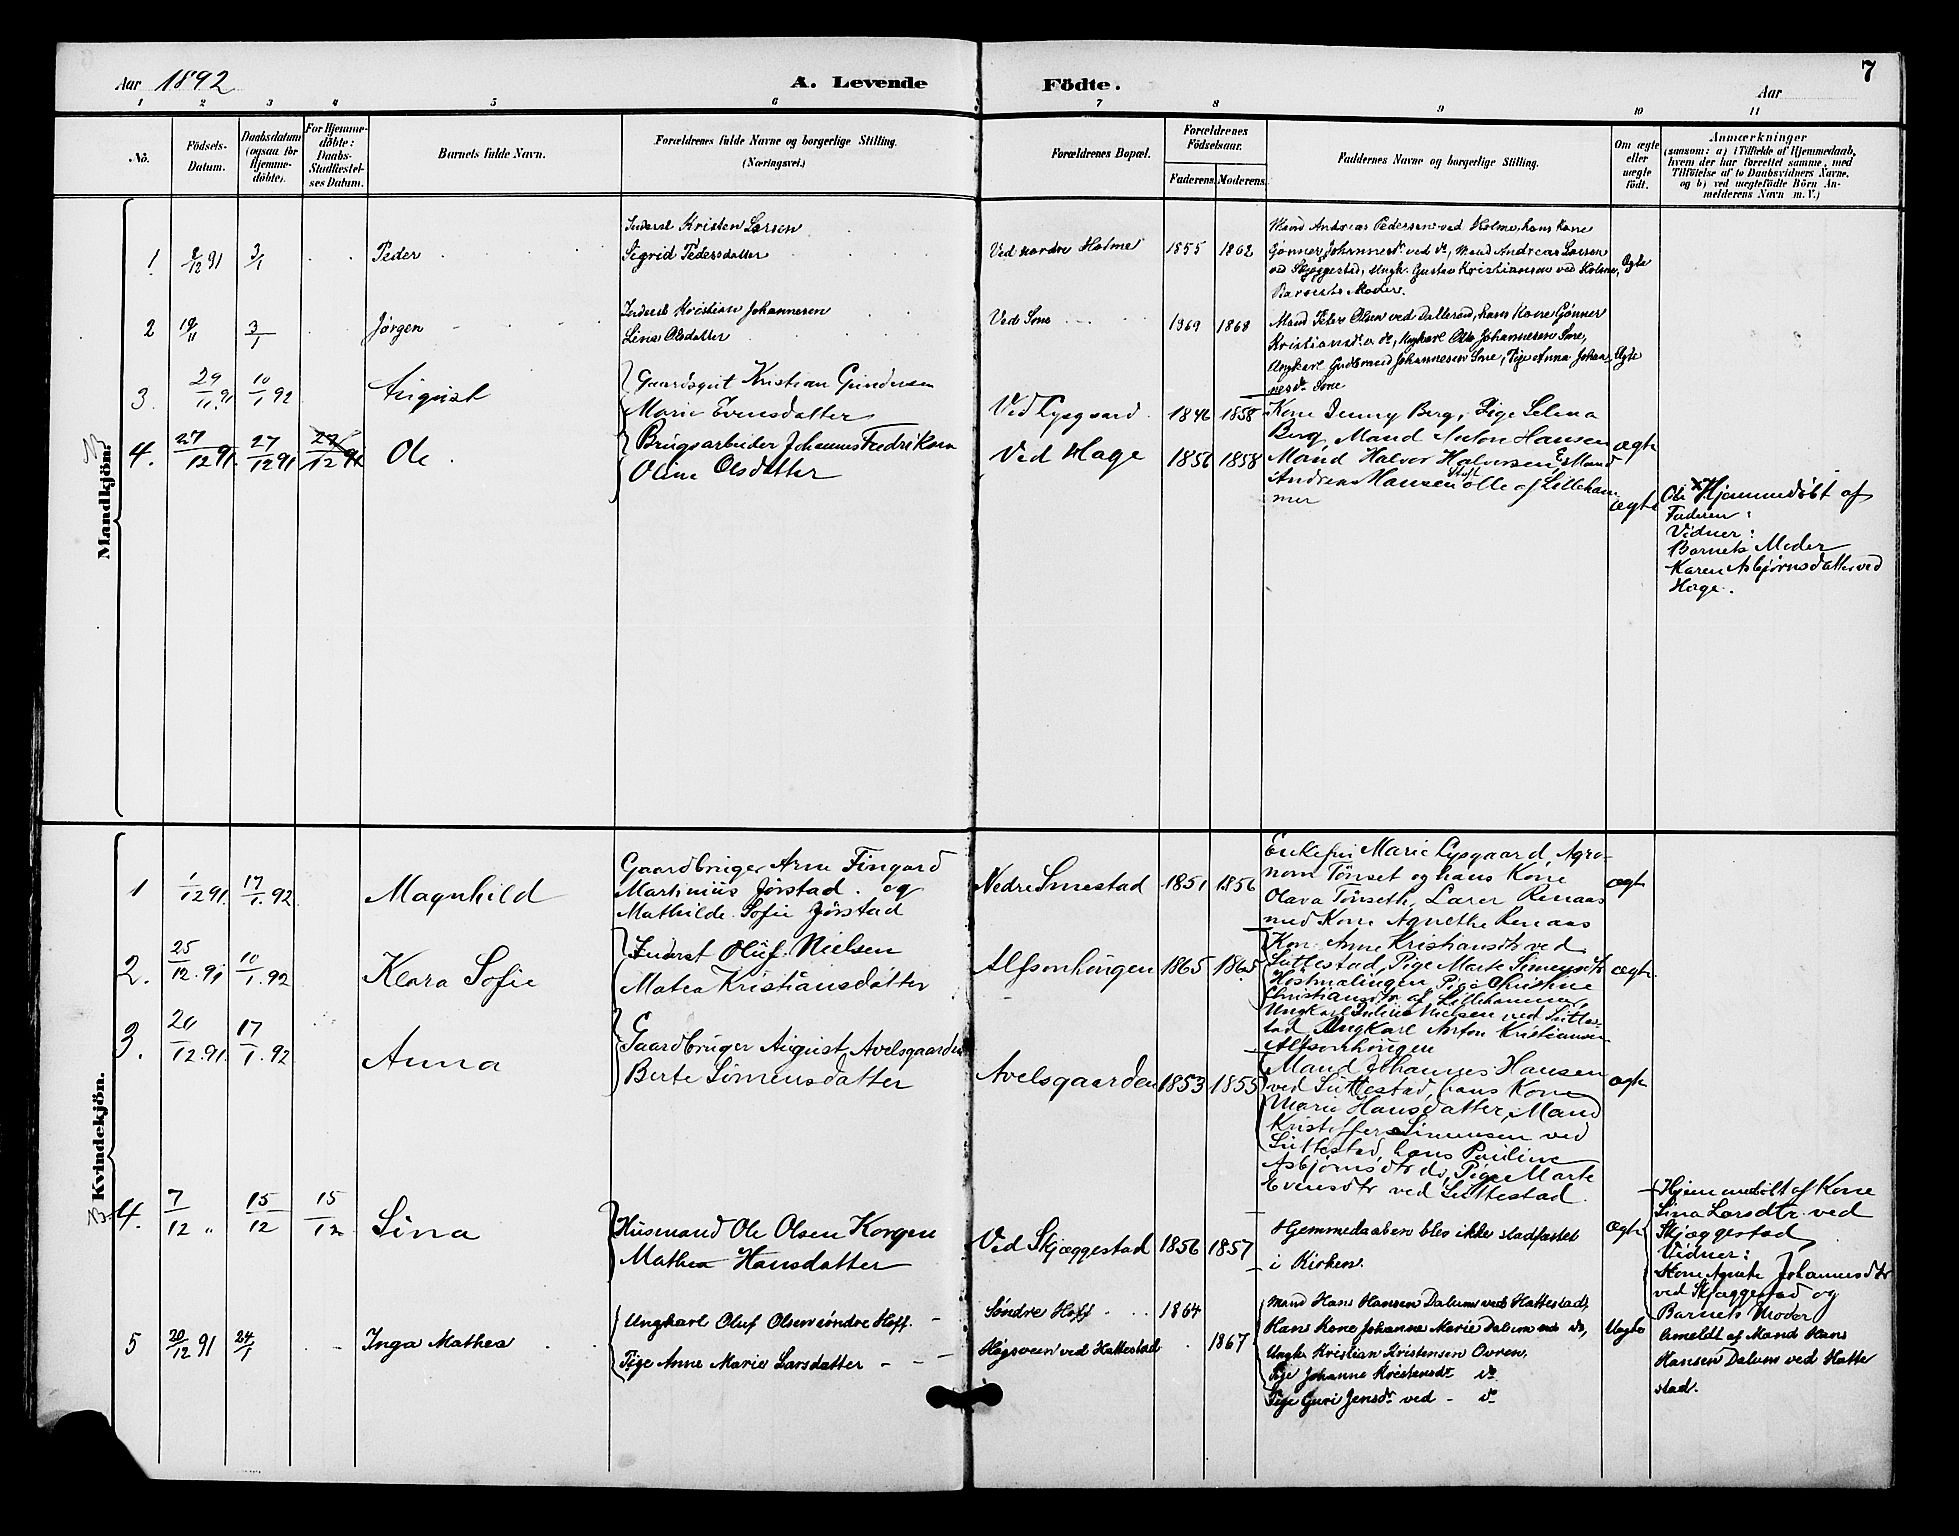 Aar 1892
A. Levende Födte.
7
Aar
1 2 3 4 5 6 7 8 9 10 11
No.
Födsels-
Datum.
Daabsdatum
(ogsaa for
Hjemme-
döbte).
For Hjemme-
döbte:
Daabs-
Stadfæstel-
ses Datum.
Barnets fulde Navn.
Forældrenes fulde Navne og borgerlige Stilling.
(Næringsvei.)
Forældrenes Bopæl.
Forældrenes
Födselsaar.
Faderens. Moderens.
Faddernes Navne og borgerlige Stilling.
Om ægte
eller
uægte
födt.
Anmærkninger
(saasom: a) i Tilfælde af Hjemmedaab,
hvem der har forrettet samme, med
Tilföielse af to Daabsvidners Navne.
og b) ved uægtefödte Börn An-
melderens Navn m. V.)
Mandkjön.
1. 8/12 91 3/1 Peder
Inderst Kristen Larsen
Sigrid Pedersdatter
Ved nordre Holme 1855 1862
Mand Andreas Pedersen ved Holme, hans Kone
Gønner Johannesdr ved do, Mand Andreas Larsen
ved Skjæggestad, Ungk. Gustav Kristiansen ved Holme,
Barnets Moder.
Ægte
2 19/11 3/1 Jørgen
Inderst Kristian Johannesen
Lina Olsdatter
Ved Sme 1869 1868
Mand Peter Olsen ved Dallerud, hans Kone Gønner
Kristiansdr v. do, Ungkarl Ole Johannesen Sme,
Ungkarl Gudbrand Johannesen Sme, Pige Anna Johan
nesdr Sme
Ægte
3. 29/11 91 10/1 92 August
Gaardsgut Kristian Gundersen
Marie Evensdatter
Ved Lysgaard 1846 1858
Kone Jenny Berg, Pige Selma
Berg, Mand Anton Hansen
ægte
4. 27/12 91 27/12 91 27/12 91 Ole
Brugsarbeider Johannes Fredriksen
Oline Olsdatter
Ved Hage 1856 1858
Mand Halvor Halversen, Mand
Andreas Hansen Stoltolle af Lilleham
mer
ægte
Ole Hjemmedøbt af
Faderen:
Vidner:
Barnets Moder
Karen Asbjørnsdatter ved
Hage.
3 Kvindekjön.
1 1/12 91. 17/1. 92 Magnhild
Gaardbruger Arne Fingard
Martinius Jørstad. og
Mathilde Sofie Jørstad
Nedre Smestad 1851 1856
Enkefru Marie Lysgaard, Agro-
nom Tønset og hans Kone
Olava Tønseth, Lærer Renaas
med Kone Agnethe Renaas
ægte
2. 25/12. 91 10/1. 92 Klara Sofie
Inderst Oluf Nielsen
Matea Kristiansdatter
Alfsonhøugen 1865 1865
Kon. Anne Kristiansdtr ved
Suttestad, Pige Marte Simensdtr
Høstmælingen, Pige Christine
Christiansdtr af Lillehammer,
Ungkarl Julius Nielsen ved Sutte-
stad Ungkarl Anton Kristiansen
Alfsonhøugen
ægte
3. 20/12. 91. 17/1. 92 Anna
Gaardbruger August Avelsgaarden
Berte Simensdatter
Avelsgaarden 1853 1855
Mand Johannes Hansen
ved Suttestad, hans Kone
Marie Hansdatter, Mand
Kristoffer Simensen ved
Suttestad, hans Pauline
Asbjørnsdtr do, Pige Marte
Evensdtr ved Suttestad.
ægte
4. 7/12 " 15/12 15/12 Lina
Husmand Ole Olsen Korgen
Mathea Hansdatter
Ved Skjæggestad 1856 1857
Hjemmedaaben blev ikke stadfæstet
i Kirken.
ægte
Hjemmedøbt af Kone
Lina Larsdtr. ved
Skjæggestad,
Vidner:
Kone Agnete Johannesdtr
ved Skjæggestad og
Barnets Moder
5 20/12 91 24/1 Inga Mathea
Ungkarl Oluf Olsen søndre Hoff.
Pige Anne Marie Larsdatter
Søndre Hoff 1864
Høgsveen ved Hattestad 1867
Mand Hans Hansen Dalum ved Hattestad,
Hans Kone Johanne Marie Dalum ved do,
Ungk. Kristian Kristensen Ovren,
Pige Johanne Kristensdr do
Pige Guri Jensdr ved - do
Uægte
Anmeldt af Mand Hans
Hansen Dalum ved Hatte
stad.